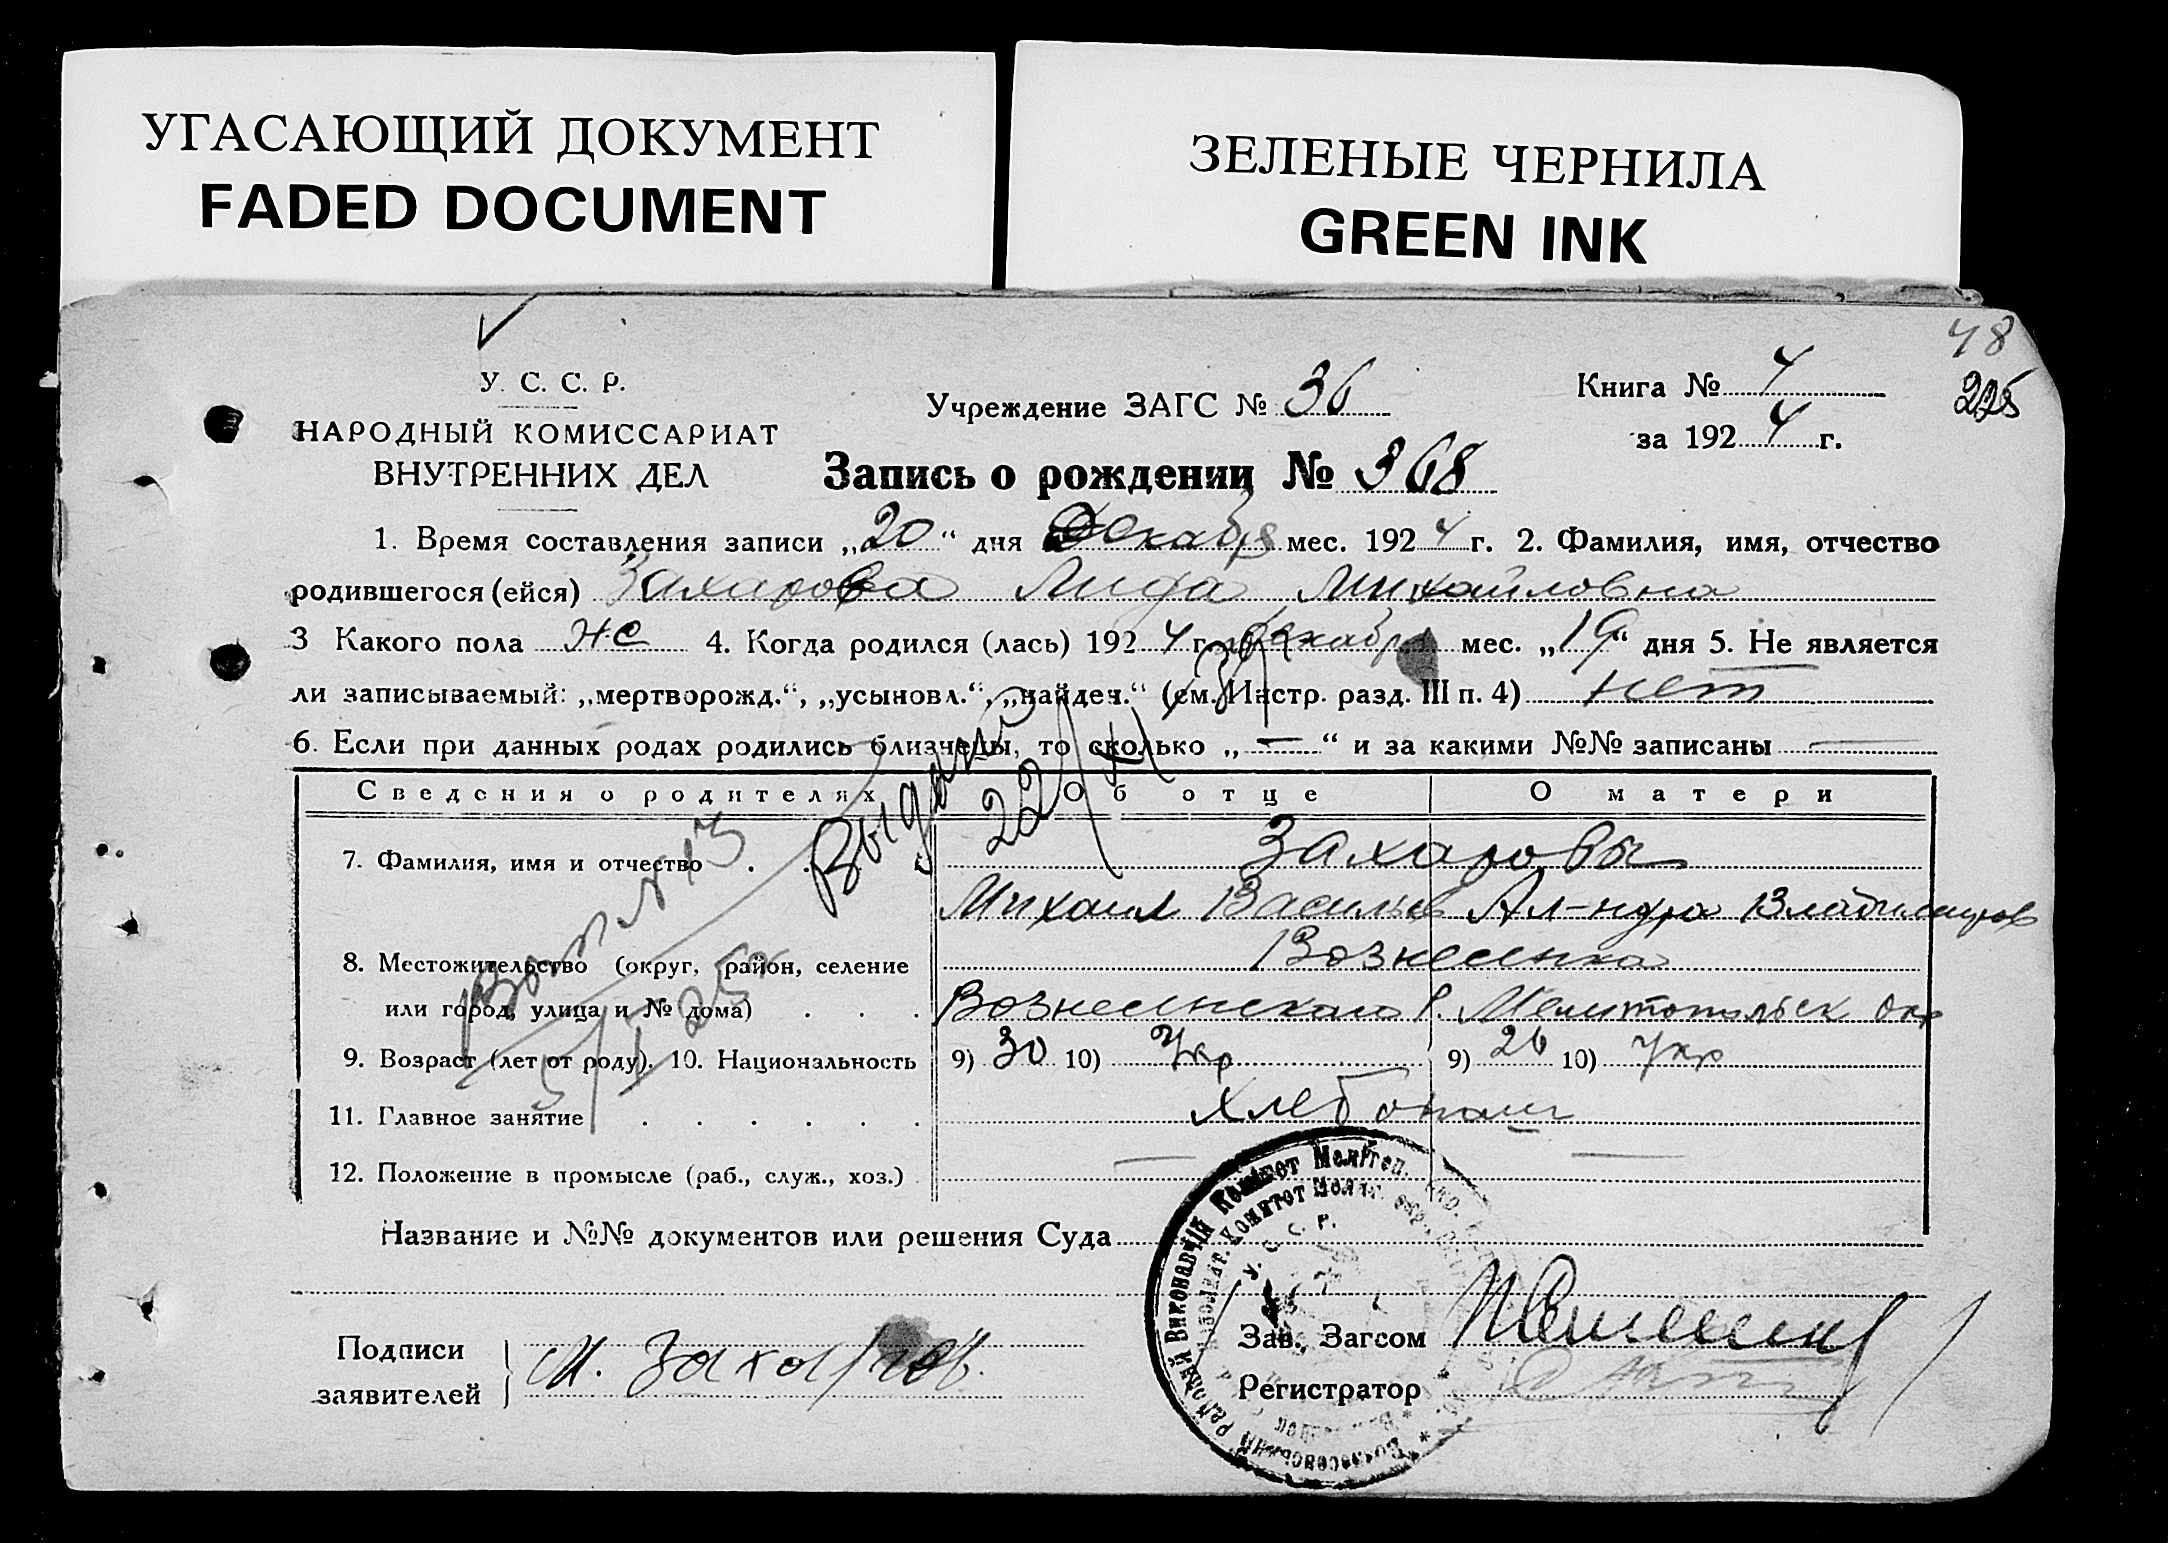 УГАСАЮЩИЙ ДОКУМЕНТ
FADED DOCUMENT
ЗЕЛЕНЫЕ ЧЕРНИЛА
GREEN INK
48
У. С. С. Р.
НАРОДНЫЙ КОМИССАРИАТ
ВНУТРЕННИХ ДЕЛ
Учреждение ЗАГС № 36
Книга № 4
за 1924 г.
Запись о рождении № 368
1. Время составления записи „20“ дня Декабря мес. 1924 г. 2. Фамилия, имя, отчество
родившегося (ейся) Захарова Лида Михайловна
3 Какого пола же 4. Когда родился (лась) 1924 г. декабря мес. „19“ дня 5. Не является
ли записываемый: „мертворожд.“, „усыновл.“, „найден.“ (см. Инстр. разд. III п. 4) нет
6. Если при данных родах родились близнецы, то сколько „—“ и за какими №№ записаны —
Сведения о родителях Об отце О матери
7. Фамилия, имя и отчество . . . Захаровы
Михаил Васильев Ал-ндра
8. Местожительство (округ, район, селение Вознесенка
или город, улица и № дома) . . . Вознесенского р. Мелитопольск окр
9. Возраст (лет от роду). 10. Национальность 9) 30 10) Укр 9) 26 10) Укр
11. Главное занятие . . . . . . Хлебопаш
12. Положение в промысле (раб., служ., хоз.) — —
Название и №№ документов или решения Суда
У. С. С. Р.
Подписи
заявителей
М. Захаров.
Зав. Загсом
Регистратор